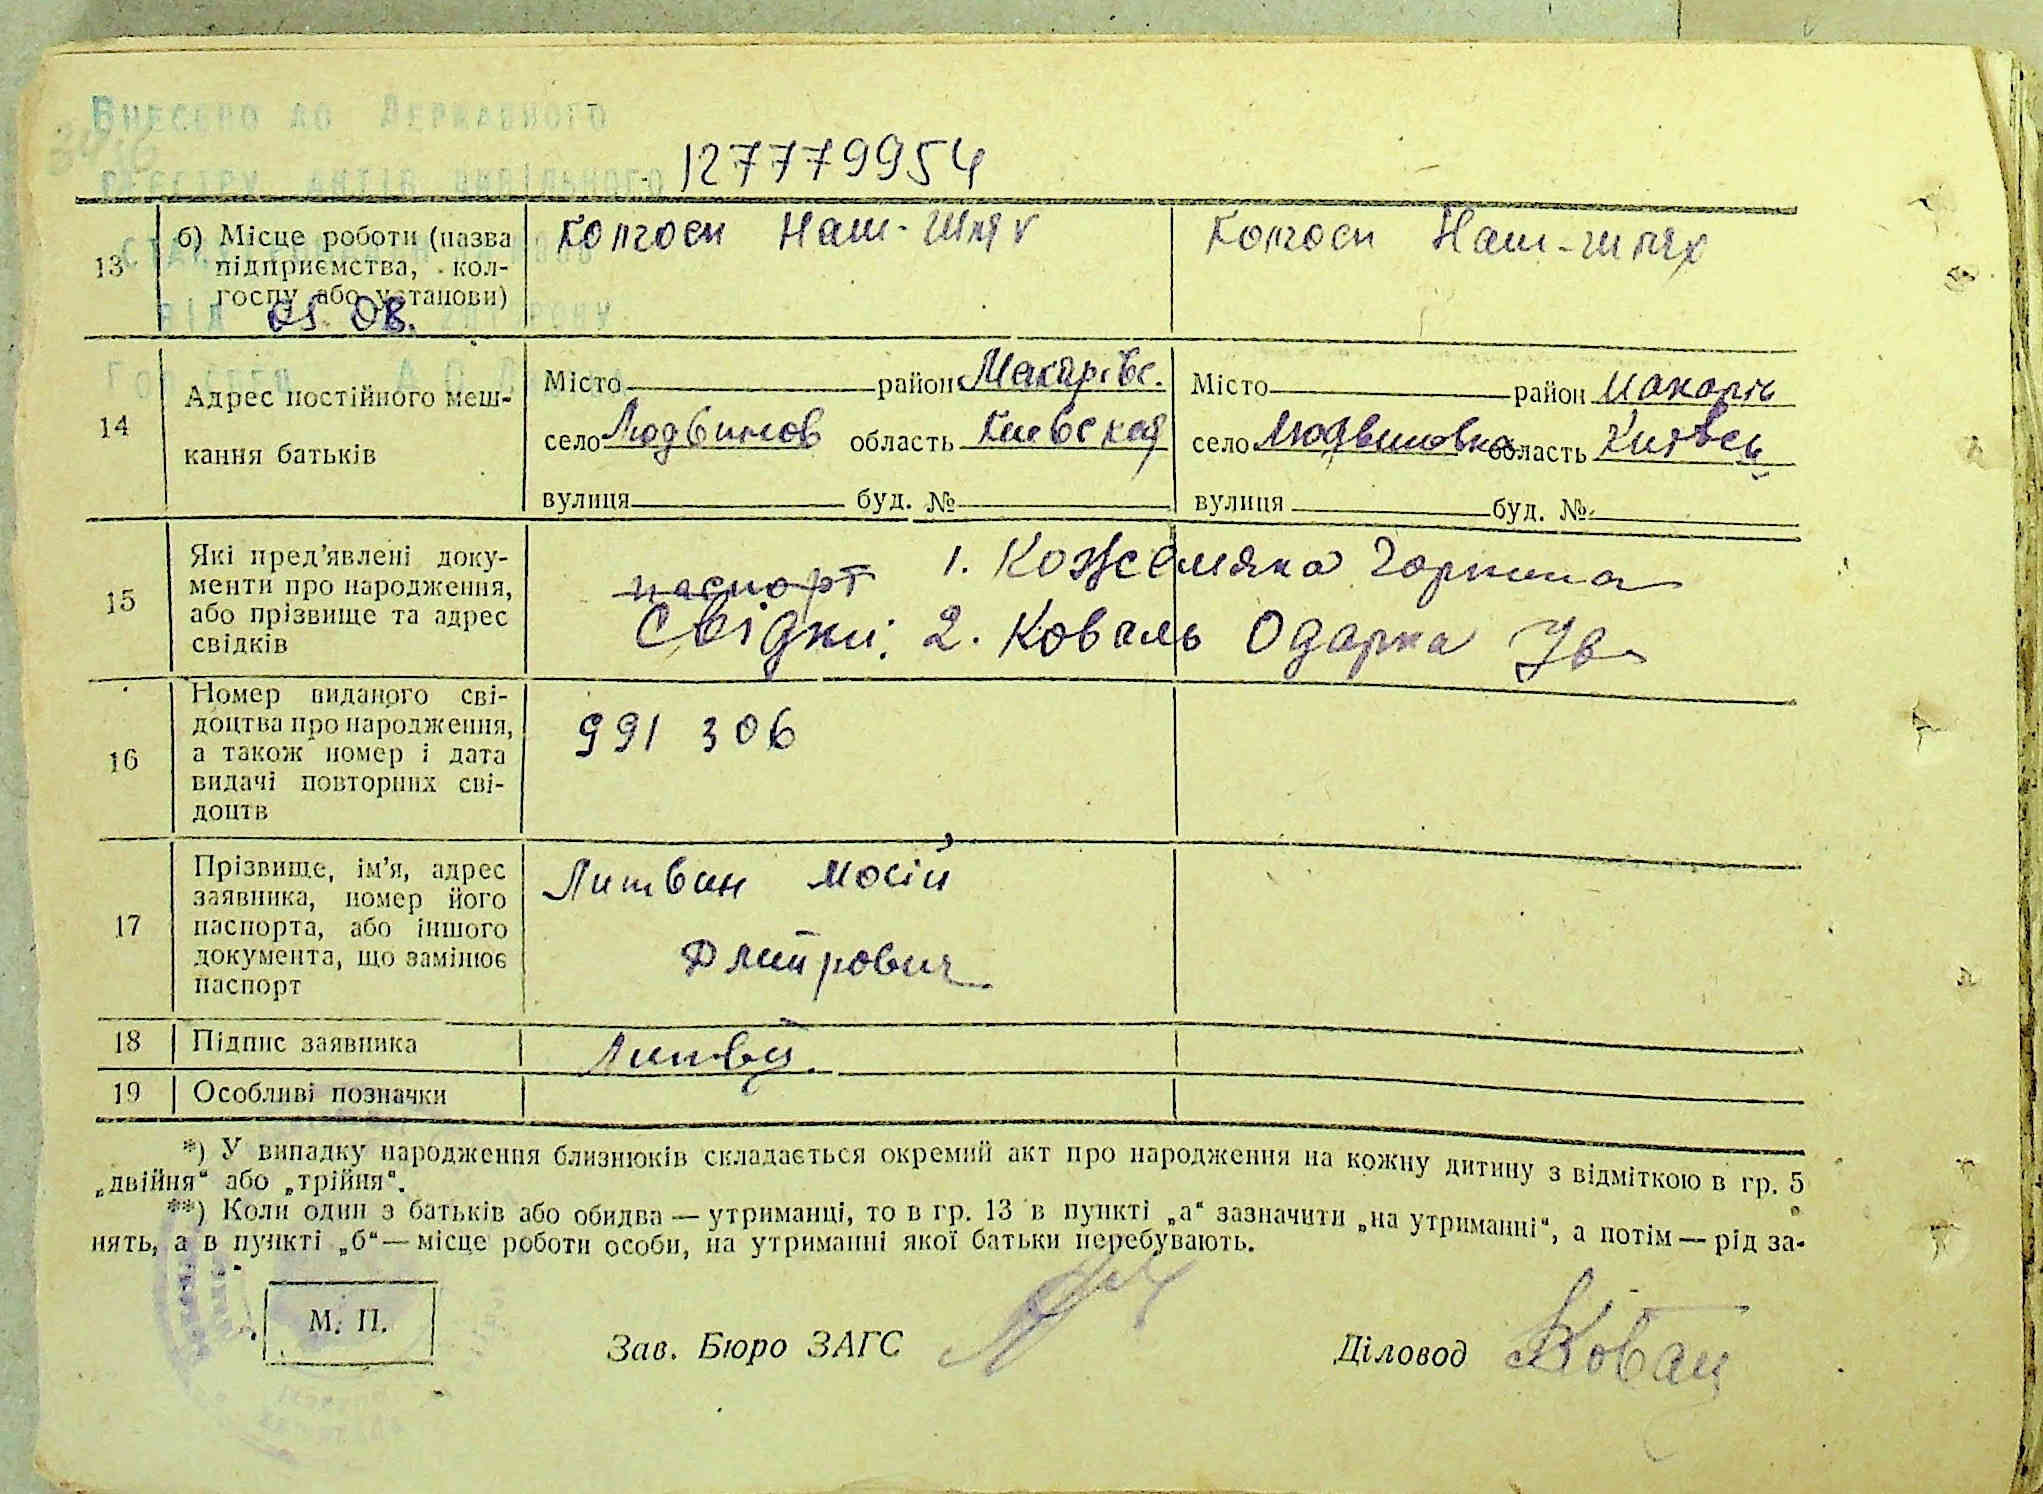 Внесено до Державного
реєстру актів цивільного
127779954
13 б) Місце роботи (назва підприємства, колгоспу або установи) Колгосп Наш-Шлях Колгосп Наш-шлях
від 05 08. року
14 Адрес постійного мешкання батьків
Місто район Макарівс. Місто район Макарів
село Людвинов область Киевская село Людвиновка область Київсь
вулиця буд. № вулиця буд. №
15 Які пред'явлені документи про народження, або прізвище та адрес свідків
паспорт 1. Кожемяка Горпина
Свідки: 2. Коваль Одарка Ів
16 Номер виданого свідоцтва про народження, а також номер і дата видачі повторних свідоцтв
991 306
17 Прізвище, ім'я, адрес заявника, номер його паспорта, або іншого документа, що замінює паспорт
Литвин Мосій
Дмитрович
18 Підпис заявника Литви
19 Особливі позначки
*) У випадку народження близнюків складається окремий акт про народження на кожну дитину з відміткою в гр. 5
„двійня“ або „трійня“.
**) Коли один з батьків або обидва — утриманці, то в гр. 13 в пункті „а“ зазначити „на утриманні“, а потім — рід за-
нять, а в пункті „б“ — місце роботи особи, на утриманні якої батьки перебувають.
М. П.
Зав. Бюро ЗАГС Діловод